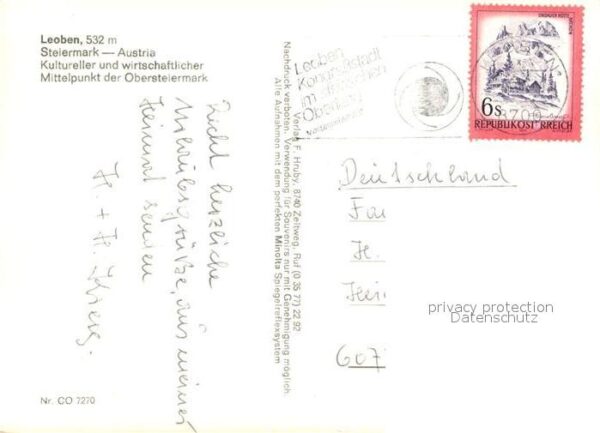 Leoben, 532 m
Steiermark — Austria
Kultureller und wirtschaftlicher
Mittelpunkt der Obersteiermark
Recht herzliche
Urlaubsgrüße, aus meiner
Heimat senden
H. + H.
Nr. CO 7270
Nachdruck verboten. Verwendung für Souvenirs nur mit Genehmigung möglich.
Verlag F. Hruby, 8740 Zeltweg, Ruf (0 35 77) 22 92
Alle Aufnahmen mit dem perfekten Minolta Spiegelreflexsystem
Leoben
Kongreßstadt
im steirischen
Oberland
8700
6s
REPUBLIK ÖSTERREICH
Deutschland
Fa
H.
Hei
607
privacy protection
Datenschutz